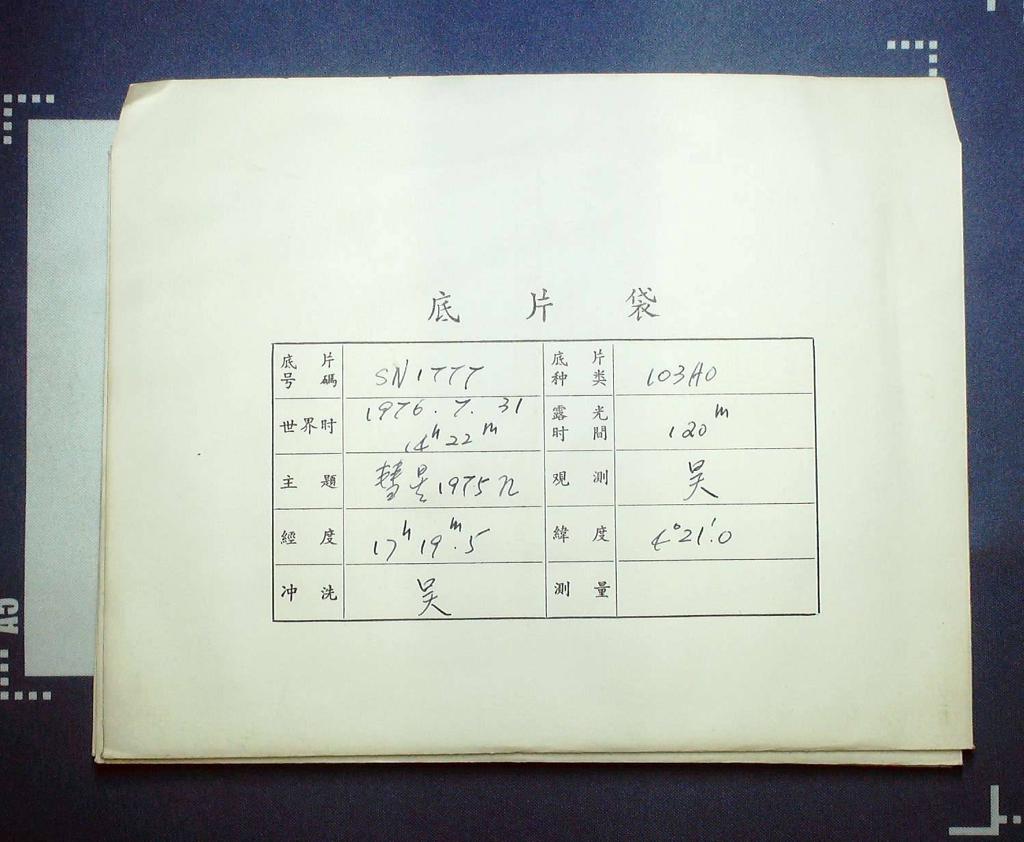 底 片 袋
底片号碼 SN1777 底片种类 103AO
世界时 1976.7.31 14h22m 露光时間 120m
主題 彗星1975n 观測 吴
經度 17h19m.5 緯度 4°21'.0
冲洗 吴 測量